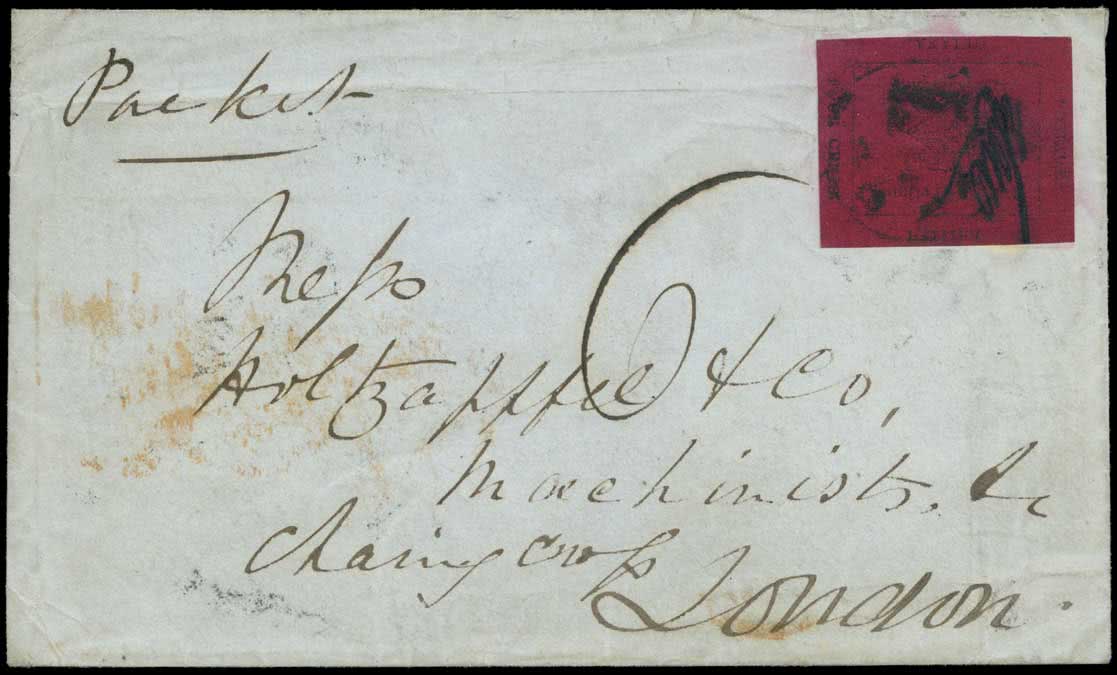 Packet
Messrs
Holtzapffel & Co,
Machinists, &c
Charing Cross
London.